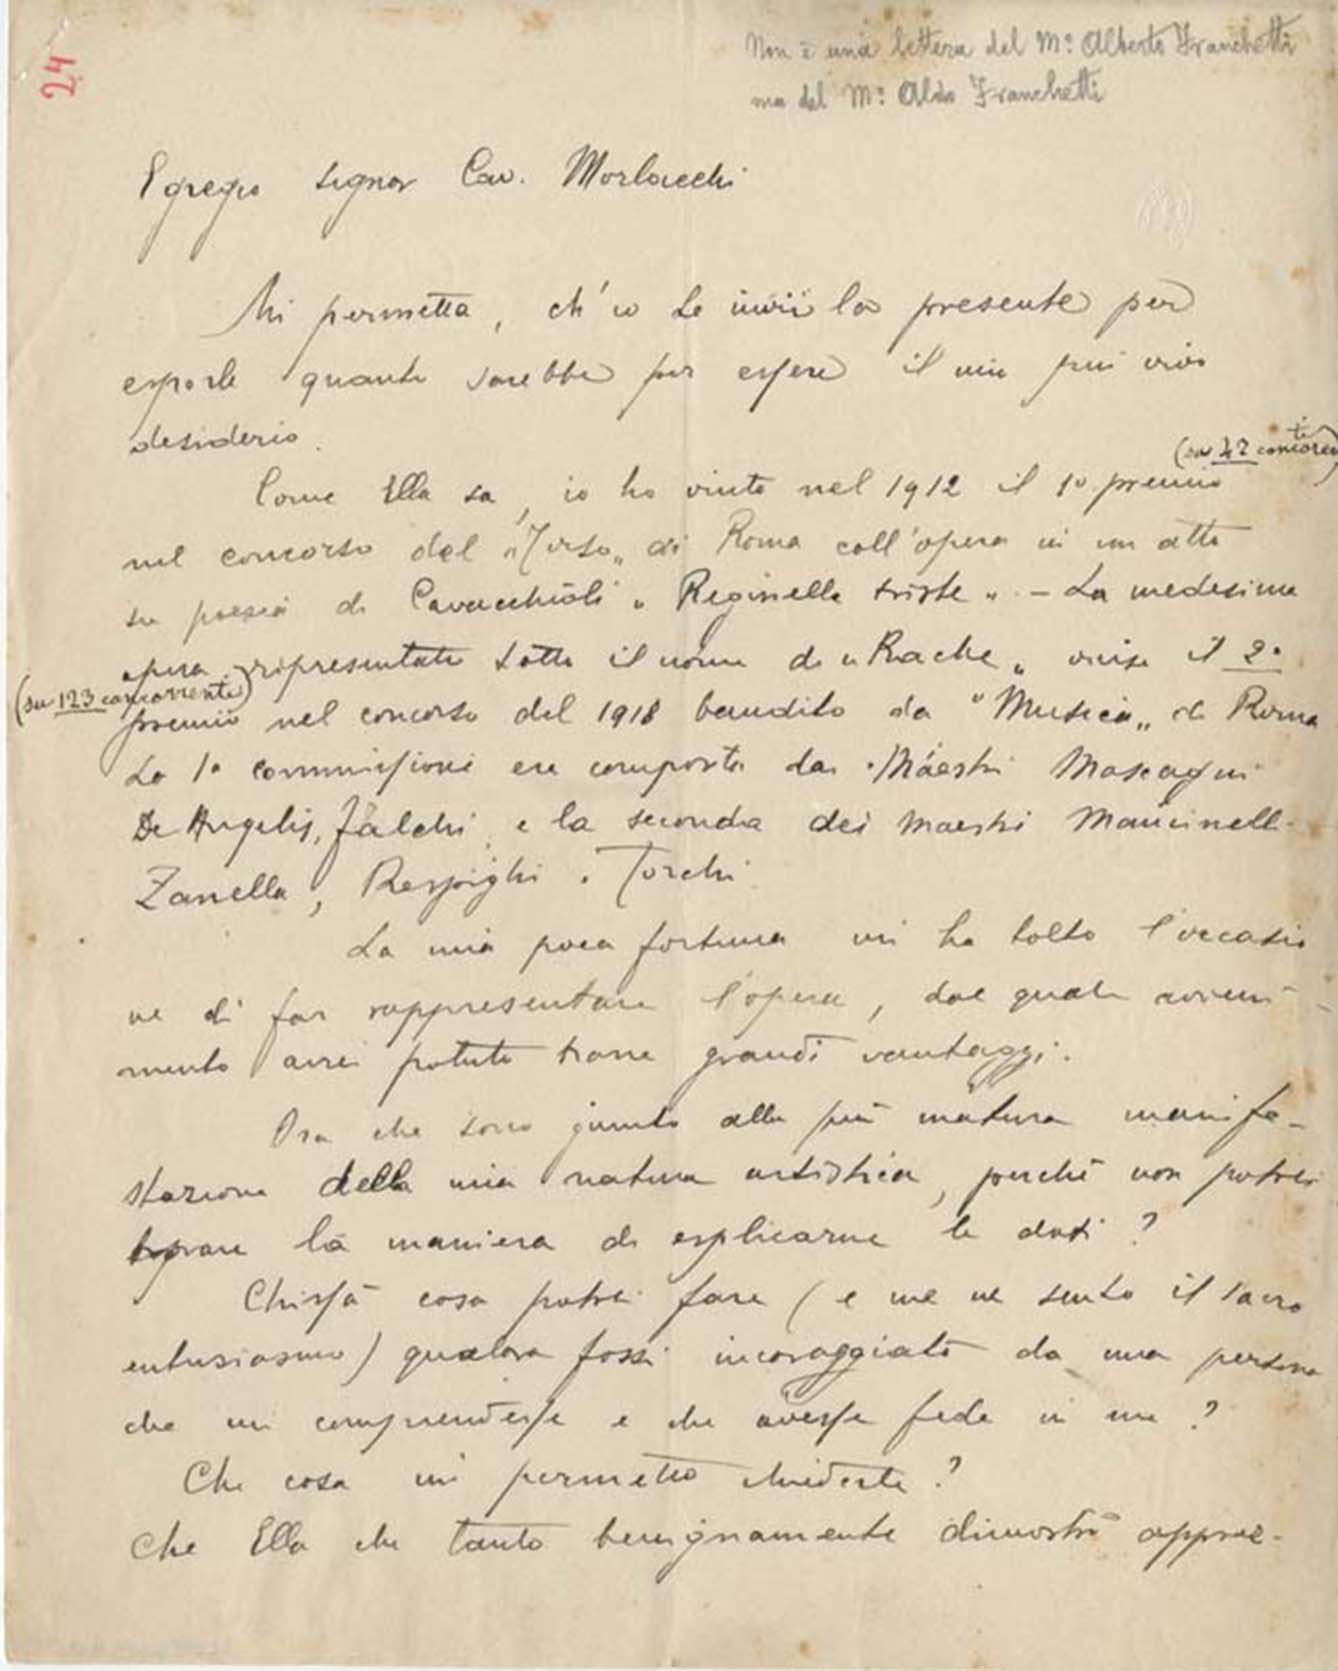 24
Non è una lettera del M.º Alberto Franchetti
ma del M.º Aldo Franchetti
Egregio signor Cav. Morlacchi
Mi permetta, ch'io Le invii la presente per
esporle quanto sarebbe per essere il mio più vivo
desiderio.
(su 42 concorrenti)
Come Ella sa, io ho vinto nel 1912 il 1º premio
nel concorso del "Torso" di Roma coll'opera in un atto
su poesia di Cavacchioli "Reginella triste". - La medesima
opera ripresentata sotto il nome di "Rache" vinse il 2º
(su 123 concorrenti)
premio nel concorso del 1918 bandito da "Musica" di Roma
La 1ª commissione era composta dai Maestri Mascagni
De Angelis, Falchi e la seconda dei maestri Mancinelli
Zanella, Respighi e Torchi.
La mia poca fortuna mi ha tolto l'occasio
ne di far rappresentare l'opera, dal quale avveni-
mento avrei potuto trarre grandi vantaggi.
Ora che sono giunto alla più matura manife-
stazione della mia natura artistica, perchè non potrei
trovare la maniera di esplicarne le doti?
Chissà cosa potrei fare (e me ne sento il sacro
entusiasmo) qualora fossi incoraggiato da una persona
che mi comprendesse e che avesse fede in me?
Che cosa mi permetto chiederle?
Che Ella che tanto benignamente dimostrò apprez-